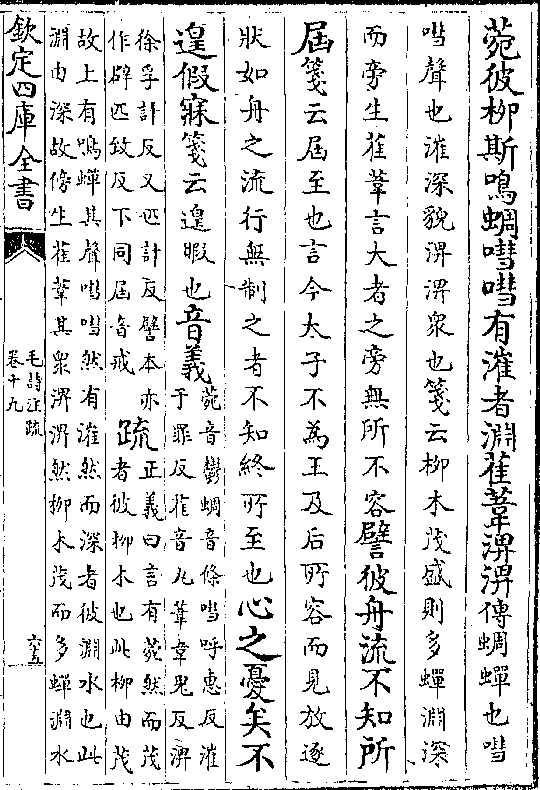 菀彼柳斯鳴蜩嘒嘒有漼者淵萑葦淠淠傳蜩蟬也嘒
嘒聲也漼深貌淠淠衆也箋云柳木茂盛則多蟬淵深
而旁生萑葦言大者之旁無所不容譬彼舟流不知所
屆箋云屆至也言今太子不為王及后所容而見放逐
狀如舟之流行無制之者不知終所至也心之憂矣不
遑假寐箋云遑暇也音義
菀音鬱蜩音條嘒呼惠反漼
于罪反萑音丸葦韋鬼反淠
徐孚計反又匹計反譬本亦
作辟匹致反下同屆音戒
疏
正義曰言有菀然而茂
者彼柳木也此柳由茂
故上有鳴蟬其聲嘒嘒然有漼然而深者彼淵水也此
淵由深故傍生萑葦其衆淠淠然柳木茂而多蟬淵水
欽定四庫全書
毛詩注疏
卷十九
六五